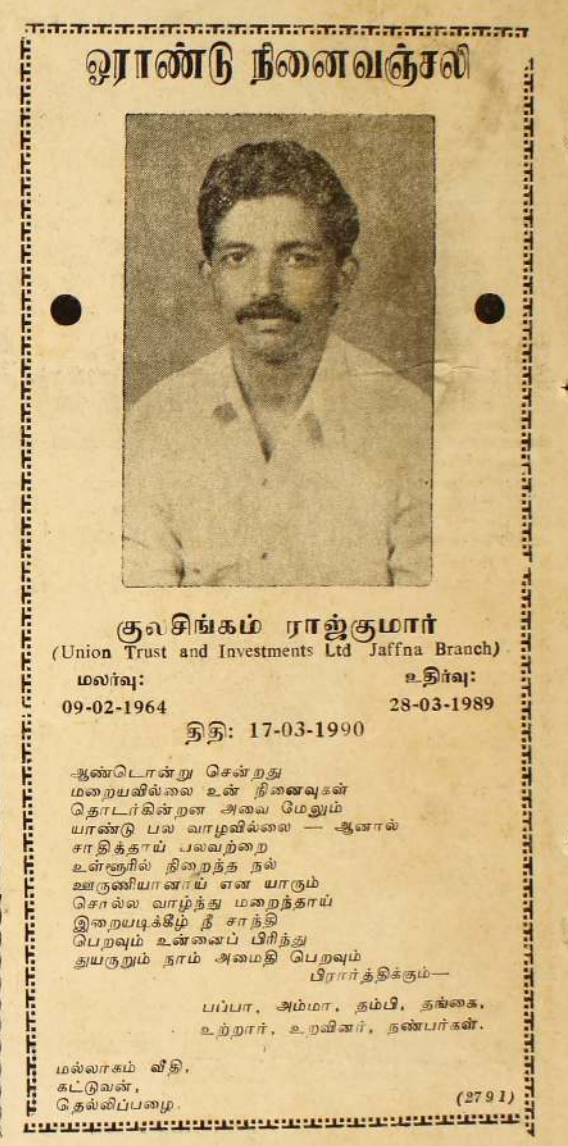 ஓராண்டு நினைவஞ்சலி
குலசிங்கம் ராஜ்குமார்
(Union Trust and Investments Ltd Jaffna Branch)
மலர்வு: உதிர்வு:
09-02-1964 28-03-1989
திதி: 17-03-1990
ஆண்டொன்று சென்றது
மறையவில்லை உன் நினைவுகள்
தொடர்கின்றன அவை மேலும்
யாண்டு பல வாழவில்லை — ஆனால்
சாதித்தாய் பலவற்றை
உள்ளூரில் நிறைந்த நல்
ஊருணியானாய் என யாரும்
சொல்ல வாழ்ந்து மறைந்தாய்
இறையடிக்கீழ் நீ சாந்தி
பெறவும் உன்னைப் பிரிந்து
துயருறும் நாம் அமைதி பெறவும்
பிரார்த்திக்கும்—
பப்பா, அம்மா, தம்பி, தங்கை,
உற்றார், உறவினர், நண்பர்கள்.
மல்லாகம் வீதி,
கட்டுவன்,
தெல்லிப்பழை. (2791)